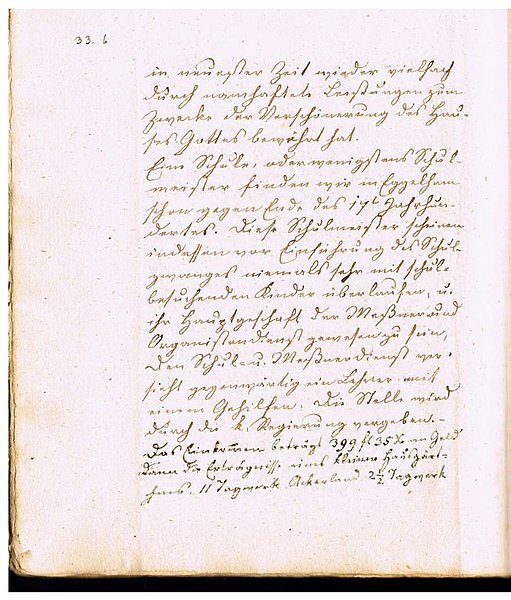 33. b
in neuester Zeit wieder vielfach
durch namhafte Leistungen zum
Zwecke der Verschönerung des Hau-
ses Gottes bewährt hat.
Eine Schule, oder wenigstens Schul-
meister finden wir in Eggelham
schon gegen Ende des 17t Jahrhun-
dertes. Diese Schulmeister scheinen
indessen vor Einführung des Schul-
zwanges niemals sehr mit schul-
besuchenden Kinder überlaufen, u.
ihr Hauptgeschäft der Meßner und
Organistendienst gewesen zu sein,
Den Schul- u. Meßnerdienst ver-
sieht gegenwärtig ein Lehrer mit
einem Gehilfen. Die Stelle wird
durch die k. Regierung vergeben.-
Das Einkommen beträgt 399 fl 35 x an Geld
dann die Erträgnisse eines kleinen Hausgärt-
chens, 11 Tagwerk Ackerland 2½ Tagwerk